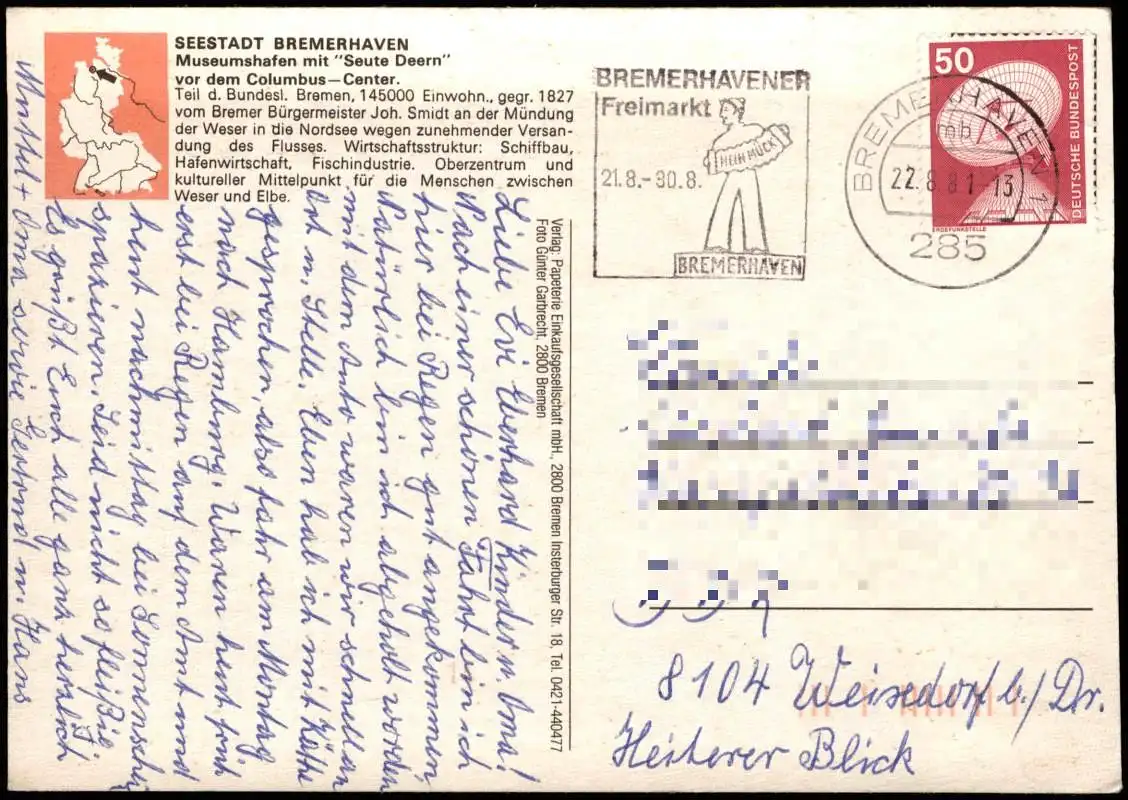 SEESTADT BREMERHAVEN
Museumshafen mit "Seute Deern"
vor dem Columbus—Center.
Teil d. Bundesl. Bremen, 145000 Einwohn., gegr. 1827
vom Bremer Bürgermeister Joh. Smidt an der Mündung
der Weser in die Nordsee wegen zunehmender Versan-
dung des Flusses. Wirtschaftsstruktur: Schiffbau,
Hafenwirtschaft, Fischindustrie. Oberzentrum und
kultureller Mittelpunkt für die Menschen zwischen
Weser und Elbe.
Liebe Evi Eberhard Kinder u. Oma!
Nach einer schönen Fahrt bin ich
hier bei Regen gut angekommen
Natürlich bin ich abgeholt worden
mit dem Auto waren wir schnell an
Ort u. Stelle. Eben hab ich mit Käthe
gesprochen, also fahr am Montag
nach Hamburg. Waren heut früh
erst bei Regen auf dem Amt und
heut nachmittag bei Sonnenschein
spazieren. Seid nicht so fleißig.
Es grüßt Euch alle ganz herzlich
+ Oma sowie Gertrud u. Hans
Verlag: Papeterie Einkaufsgesellschaft mbH., 2800 Bremen Insterburger Str. 18, Tel. 0421-440477
Foto Günter Garbrecht, 2800 Bremen
BREMERHAVENER
Freimarkt
HEIN MÜCK
21.8.-30.8.
BREMERHAVEN
BREMERHAVEN 1
mb
22.8.81-13
285
50
DEUTSCHE BUNDESPOST
ERDEFUNKSTELLE
8104 Weisedorf b./ Dr.
Heiterer Blick